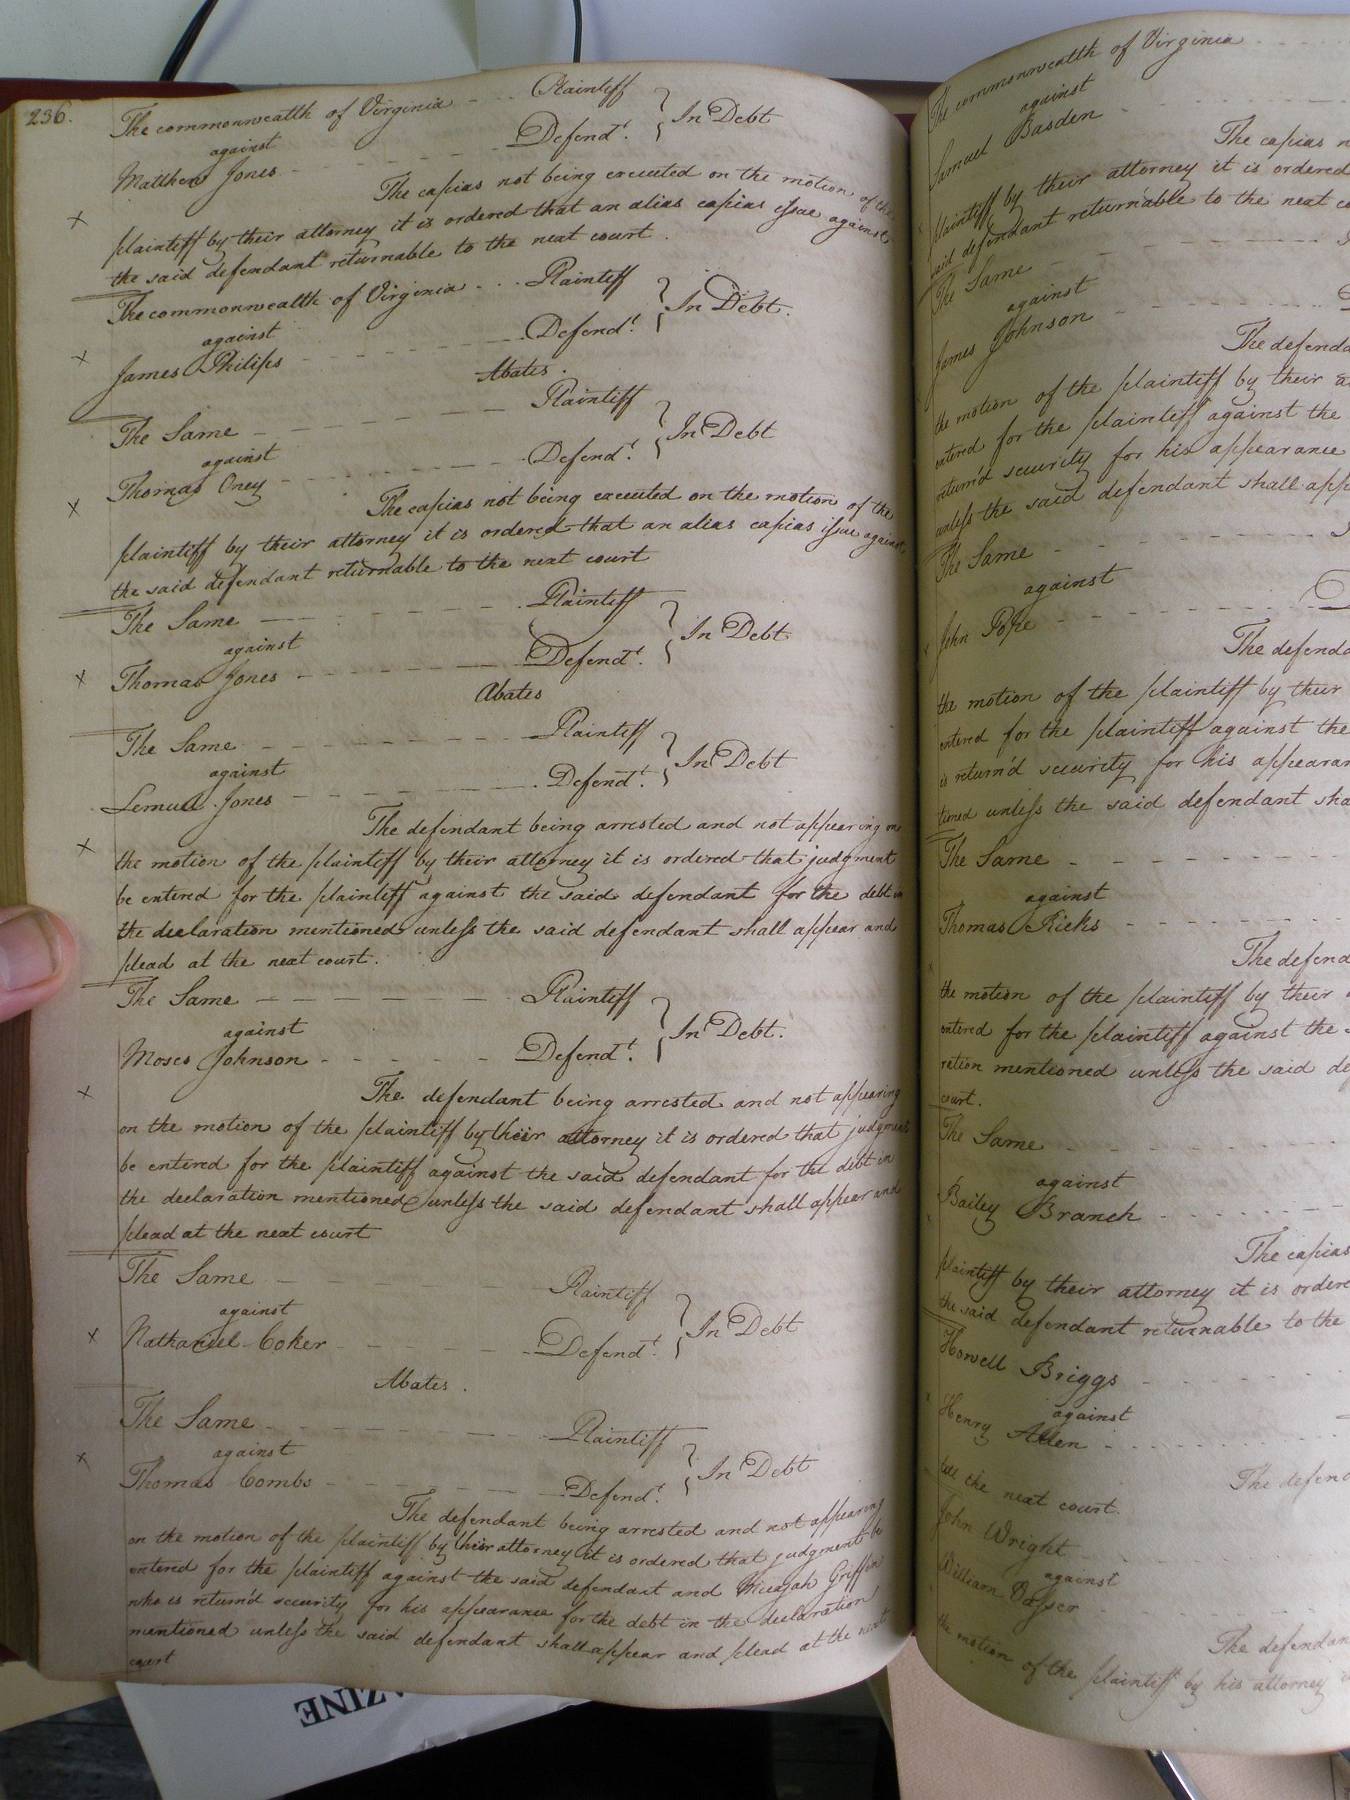 236.
The commonwealth of Virginia - - - Plaintiff
against } In Debt
Matthew Jones - - - - - Defendt.
The capias not being executed on the motion of the
plaintiff by their attorney it is ordered that an alias capias issue against
the said defendant returnable to the next court.
The commonwealth of Virginia - - - Plaintiff
against } In Debt.
James Philips - - - - - Defendt.
Abates.
The Same - - - - - Plaintiff
against } In Debt
Thomas Oney - - - - - Defendt.
The capias not being executed on the motion of the
plaintiff by their attorney it is ordered that an alias capias issue against
the said defendant returnable to the next court
The Same - - - - - Plaintiff
against } In Debt
Thomas Jones - - - - - Defendt.
Abates
The Same - - - - - Plaintiff
against } In Debt
Lemuel Jones - - - - - Defendt.
The defendant being arrested and not appearing on
the motion of the plaintiff by their attorney it is ordered that judgment
be entered for the plaintiff against the said defendant for the debt in
the declaration mentioned unless the said defendant shall appear and
plead at the next court.
The Same - - - - - Plaintiff
against } In Debt.
Moses Johnson - - - - - Defendt.
The defendant being arrested and not appearing
on the motion of the plaintiff by their attorney it is ordered that judgment
be entered for the plaintiff against the said defendant for the debt in
the declaration mentioned unless the said defendant shall appear and
plead at the next court
The Same - - - - - Plaintiff
against } In Debt
Nathaniel Coker - - - - - Defendt.
Abates.
The Same - - - - - Plaintiff
against } In Debt
Thomas Combs - - - - - Defendt.
The defendant being arrested and not appearing
on the motion of the plaintiff by their attorney it is ordered that judgment be
entered for the plaintiff against the said defendant and Micajah Griffin
who is return'd security for his appearance for the debt in the declaration
mentioned unless the said defendant shall appear and plead at the next
court
The commonwealth of Virginia - - -
against
Samuel Basden
The capias
plaintiff by their attorney it is ordered
said defendant returnable to the next
The Same
against
James Johnson
The
the motion of the plaintiff by their
entered for the plaintiff against the
return'd security for his appearance
unless the said defendant shall
The Same
against
John Pope
The
the motion of the plaintiff by their
entered for the plaintiff against the
is return'd security for his
tioned unless the said defendant
The Same
against
Thomas Ricks
The
the motion of the plaintiff by their
entered for the plaintiff against the
ration mentioned unless the said
court.
The Same
against
Bailey Branch
The capias
plaintiff by their attorney it is
the said defendant returnable to the
Howell Briggs
against
Henry Allen
The
till the next court.
John Wright
against
William Vasser
The
the motion of the plaintiff by his attorney
AZINE